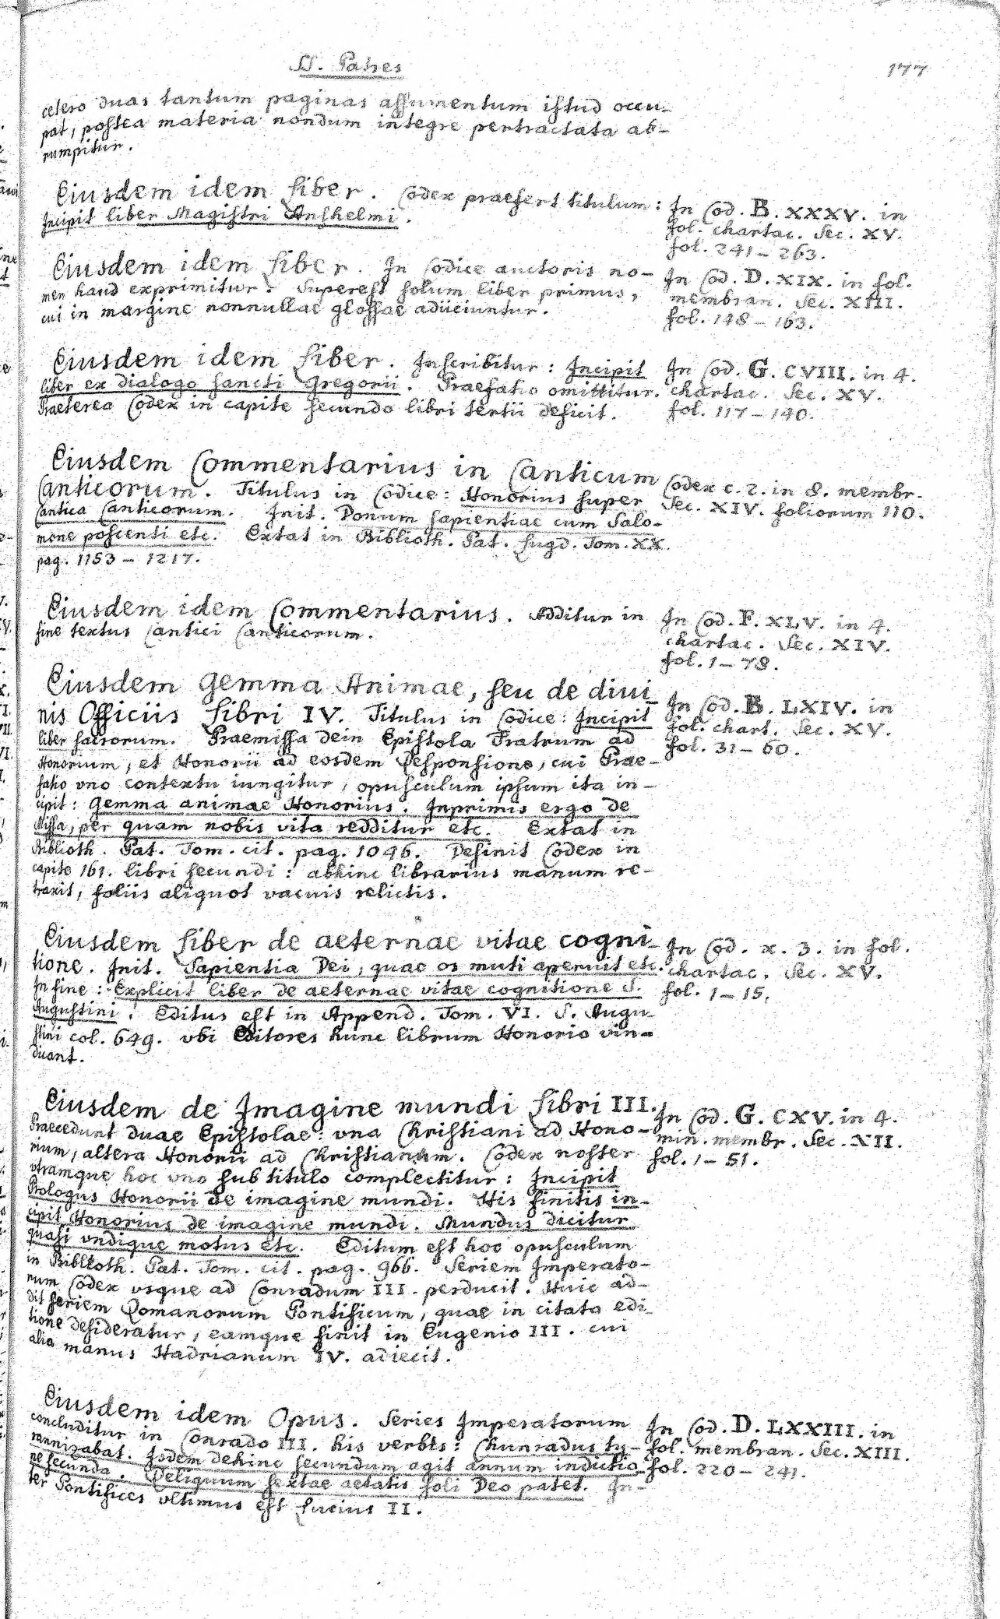 SS. Patres
177
cetero duas tantum paginas assumentum istud occu-
pat, postea materia nondum integre pertractata ab-
rumpitur.
Eiusdem idem Liber. Codex praefert titulum:
Incipit liber Magistri Anshelmi.
In Cod. B. XXXV. in
fol. chartac. Sec. XV.
fol. 241-263.
Eiusdem idem Liber. In Codice auctoris no-
men haud exprimitur. Superest solum liber primus,
cui in margine nonnullae glossae adiiciuntur.
In Cod. D. XIX. in fol.
membran. Sec. XIII.
fol. 148-163.
Eiusdem idem Liber. Inscribitur: Incipit
liber ex dialogo sancti Gregorii. Praefatio omittitur.
Praeterea Codex in capite secundo libri tertii deficit.
In Cod. G. CVIII. in 4.
chartac. Sec. XV.
fol. 117-140.
Eiusdem Commentarius in Canticum
Canticorum. Titulus in Codice: Honorius super
Cantica Canticorum. Init. Donum sapientiae cum Salo-
mone poscenti etc. Extat in Biblioth. Pat. Lugd. Tom. XX.
pag. 1153-1217.
Codex c. 2. in 8. membr.
Sec. XIV. foliorum 110.
Eiusdem idem Commentarius. Additur in
fine textus Cantici Canticorum.
In Cod. F. XLV. in 4.
chartac. Sec. XIV.
fol. 1-78.
Eiusdem Gemma Animae, seu de divi
nis Officiis Libri IV. Titulus in Codice: Incipit
liber sacrorum. Praemissa dein Epistola Fratrum ad
Honorium, et Honorii ad eosdem Responsione, cui Prae-
fatio vno contextu iungitur, opusculum ipsum ita in-
cipit: Gemma animae Honorius. Inprimis ergo de
Missa, per quam nobis vita redditur etc. Extat in
Biblioth. Pat. Tom. cit. pag. 1046. Definit Codex in
capite 161. libri secundi: abhinc librarius manum re-
traxit, foliis aliquot vacuis relictis.
In Cod. B. LXIV. in
fol. chart. Sec. XV.
fol. 31-60.
Eiusdem Liber de aeternae vitae cogni-
tione. Init. Sapientia Dei, quae os muti aperuit etc.
In fine: Explicit liber de aeternae vitae cognitione S.
Augustini. Editus est in Append. Tom. VI. S. Augu-
stini col. 649. vbi Editores hunc librum Honorio vin-
dicant.
In Cod. x. 3. in fol.
chartac. Sec. XV.
fol. 1-15.
Eiusdem de Imagine mundi Libri III.
Praecedunt duae Epistolae: vna Christiani ad Hono-
rium, altera Honorii ad Christianum. Codex noster
vtramque hoc vno sub titulo complectitur: Incipit
Prologus Honorii de imagine mundi. His finitis in-
cipit Honorius de imagine mundi. Mundus dicitur
quasi vndique motus etc. Editum est hoc opusculum
in Biblioth. Pat. Tom. cit. pag. 966. Seriem Imperato-
rum Codex vsque ad Conradum III. perducit. Huic ad-
dit seriem Romanorum Pontificum, quae in citata edi-
tione desideratur, eamque finit in Eugenio III. cui
alia manus Hadrianum IV. adiecit.
In Cod. G. CXV. in 4.
min. membr. Sec. XII.
fol. 1-51.
Eiusdem idem Opus. Series Imperatorum
concluditur in Conrado III. his verbis: Chunradus ty-
rannizabat. Isdem dehinc secundum agit annum inductio-
ne secunda. Reliquum sextae aetatis soli Deo patet. In-
ter Pontifices vltimus est Lucius II.
In Cod. D. LXXIII. in
fol. membran. Sec. XIII.
fol. 220-241.